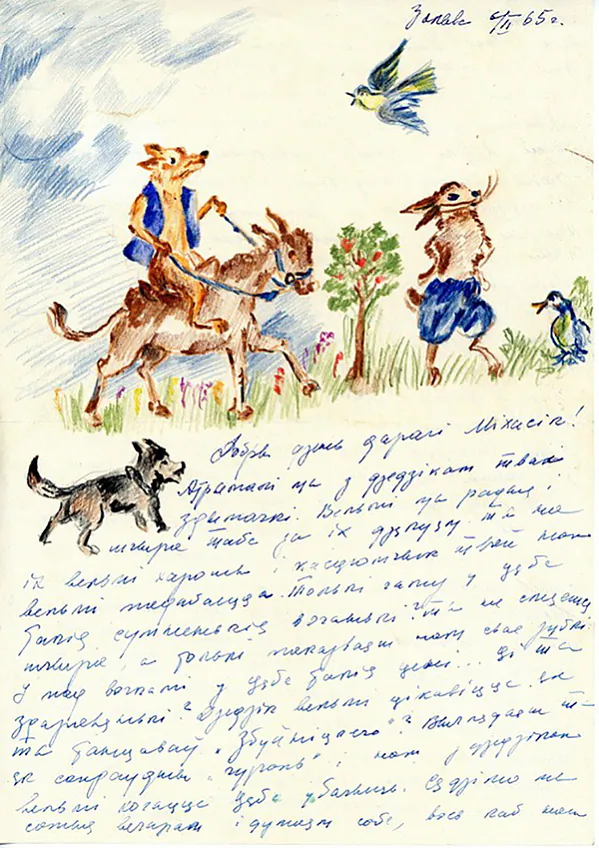 6/II 65 г.
Добры дзень дарагі Міхасік!
Атрымалі мы з дзедзікам твае
здымачкі. Вельмі мы рады і
шчыра табе за іх дзякуем. Ты на
іх вельмі харошы і касцюмчык твой нам
вельмі падабаецца. Толькі чаму у цябе
такія сумненькія вочанькі? Ты не
шчыра, а толькі паказваеш нам свае зубкі.
У пад вочкамі у цябе такія цені... Ці ты
здаровенькі? Дзедзік вельмі цікавіцца як
ты танцавау „Збуйніцкего"? Выглядаеш ты
як сапраудны „гураль" і нам з дзедзікам
вельмі хочацца цябе убачыць. Сядзімо мы
вечарам і думаем сабе, вось каб наш